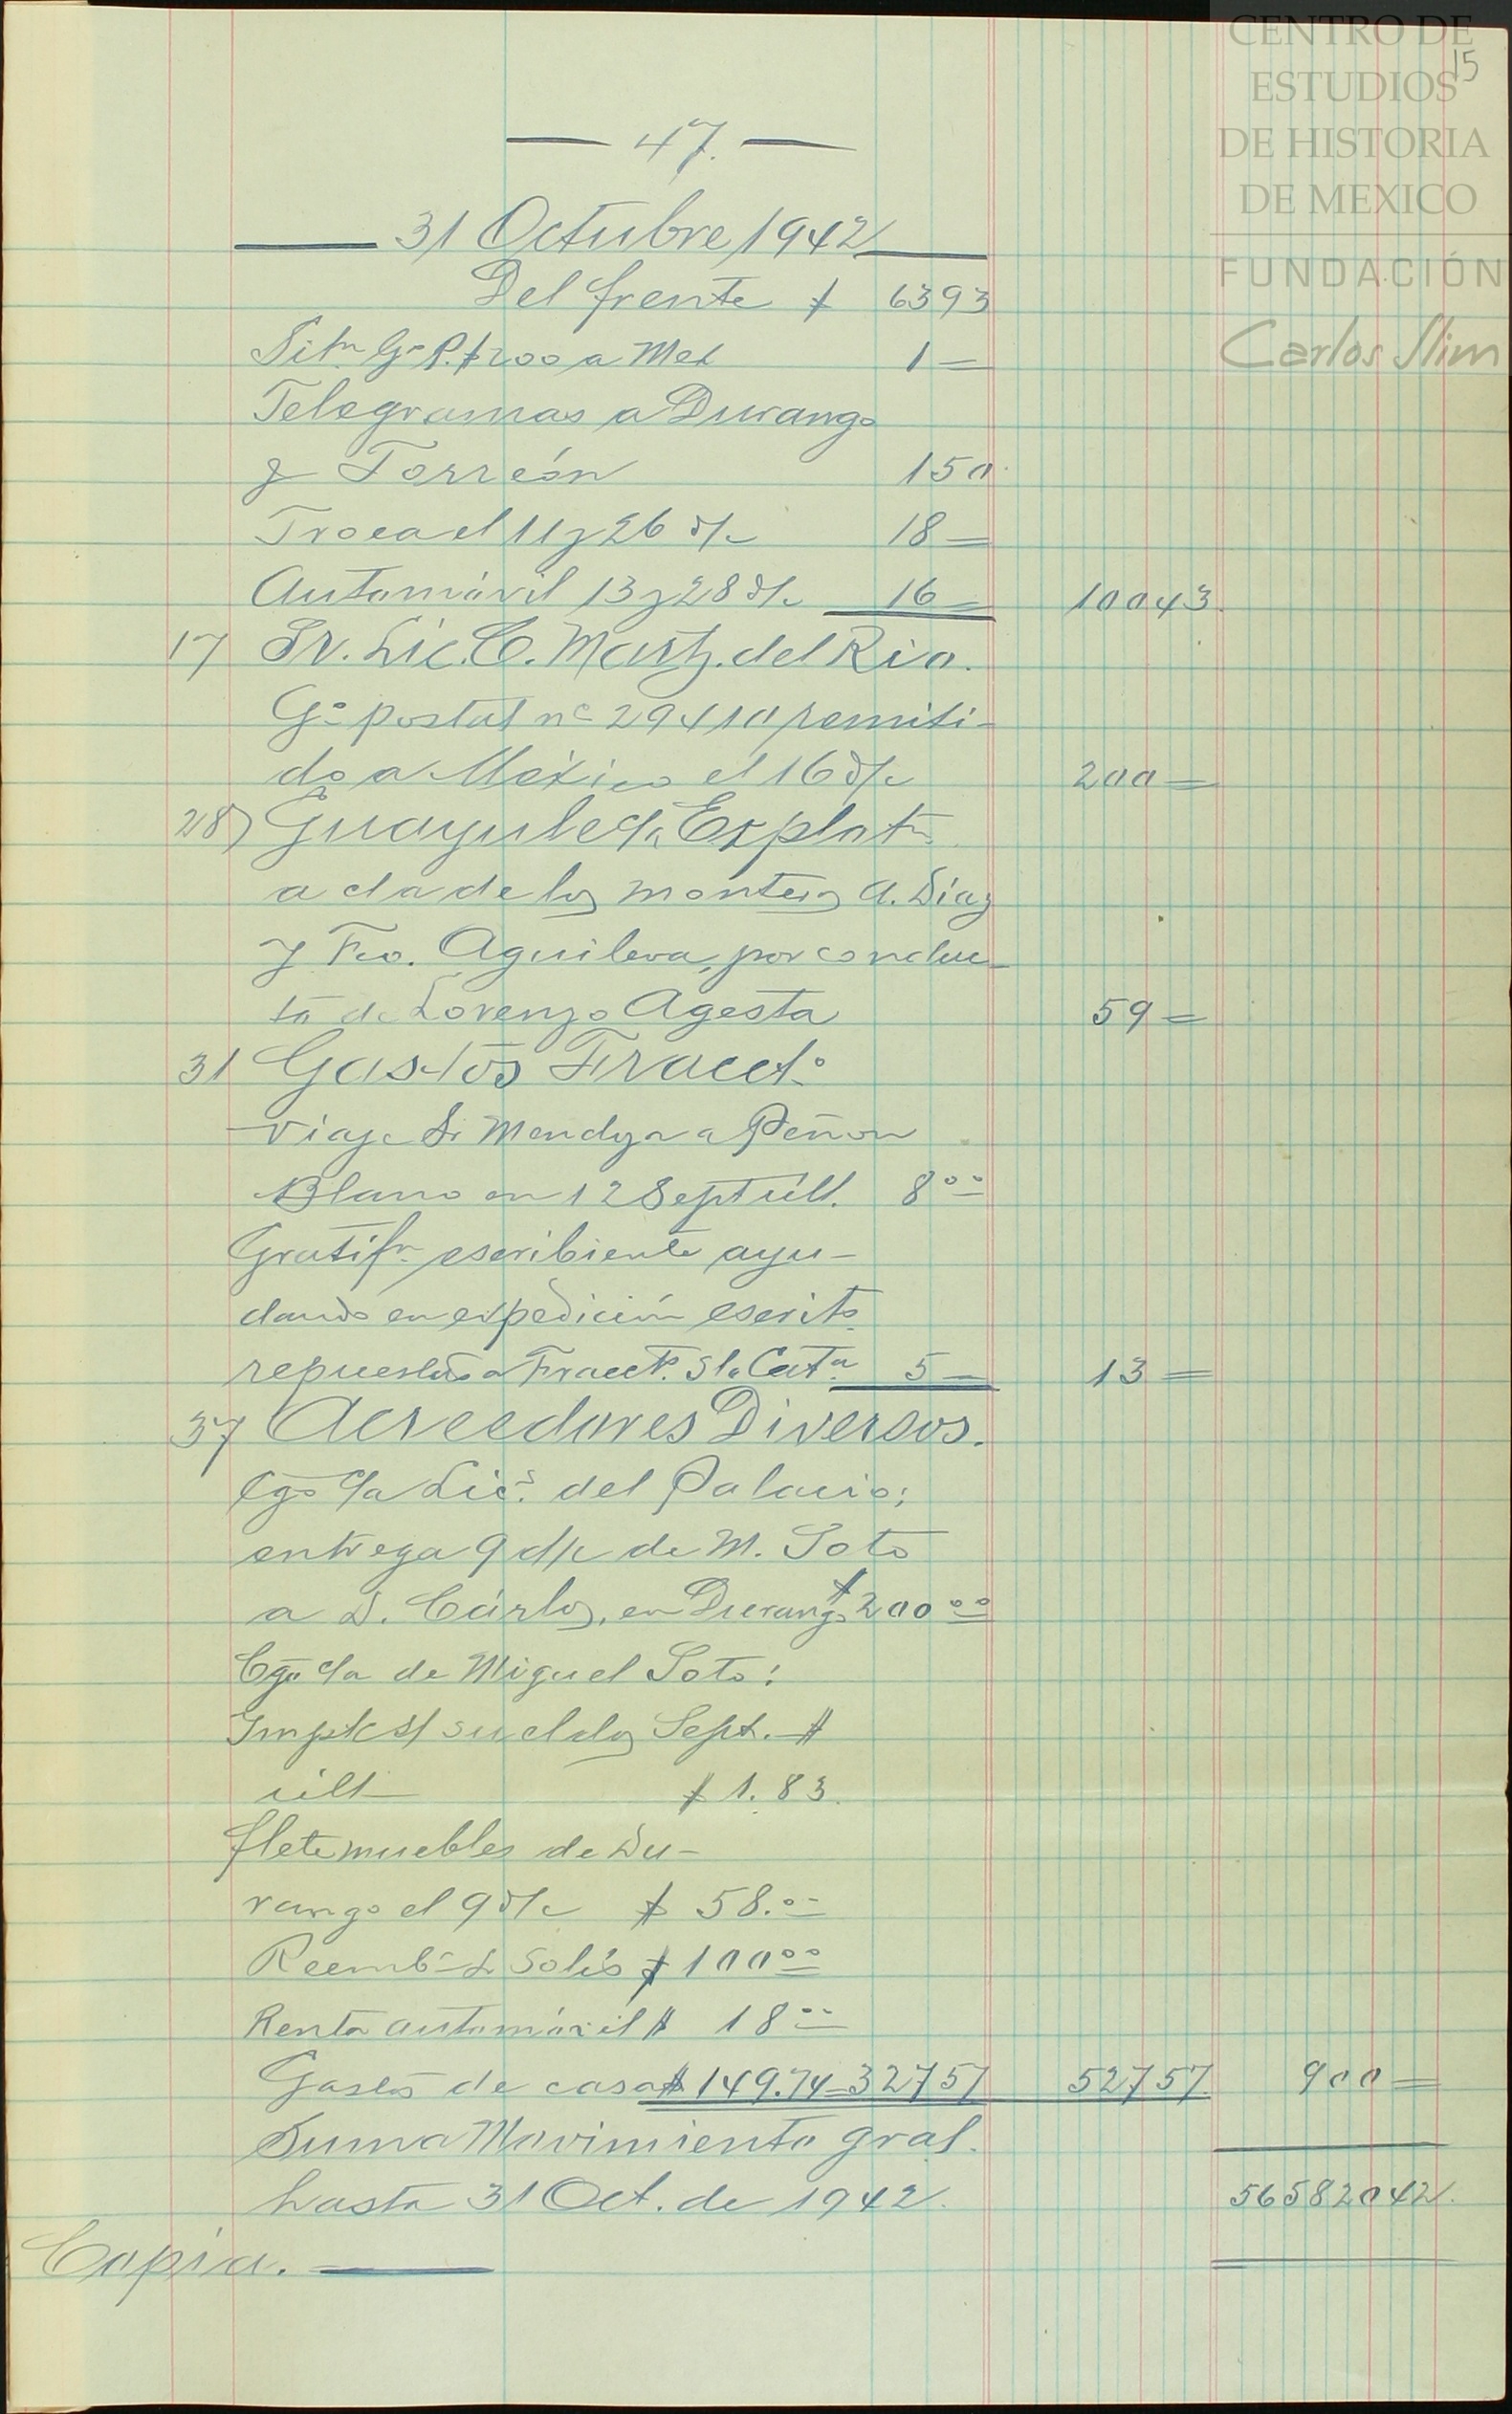 CENTRO DE
ESTUDIOS
DE HISTORIA
DE MEXICO
FUNDACIÓN
Carlos Slim
15
— 47. —
31 Octubre 1942
Del frente $ 6393
Sitn Go P. $200 a Mex 1=
Telegramas a Durango
y Torreón 150
Troca el 11 y 26 d/c 18=
Automóvil 13 y 28 d/c 16= 10043
17 Sr. Lic. C. Martz. del Rio.
Go postal no 29410 remiti-
do a México el 16 d/c 200=
28 Guayule c/a Explotn
a cta de los monteos A. Díaz
y Fco. Aguilera, por conduc-
to de Lorenzo Agesta 59=
31 Gastos Fracct.o
Viaje Sr Mendoza a Peñon
Blanco en 12 Sept últ. 8oo
Gratifn escribiente ayu-
dando en expedición escrito
repuesta a Fracct.o Sta Cat.a 5= 13=
37 Acreedores Diversos.
Cgo c/a Lic. del Palacio:
entrega 9 d/c de M. Soto
a D. Cárlos, en Durango $200oo
Cgo cta de Miguel Soto:
Impto s/ sueldos Sept. #
últ $1.83.
flete muebles de Du-
rango el 9 d/c $ 58.oo
Reembo L Solís $ 100oo
Renta automóvil $ 18oo
Gastos de casa $ 149.74 - 32757 52757 900=
Suma Movimiento gral.
hasta 31 Oct. de 1942. 56582042.
Copia.